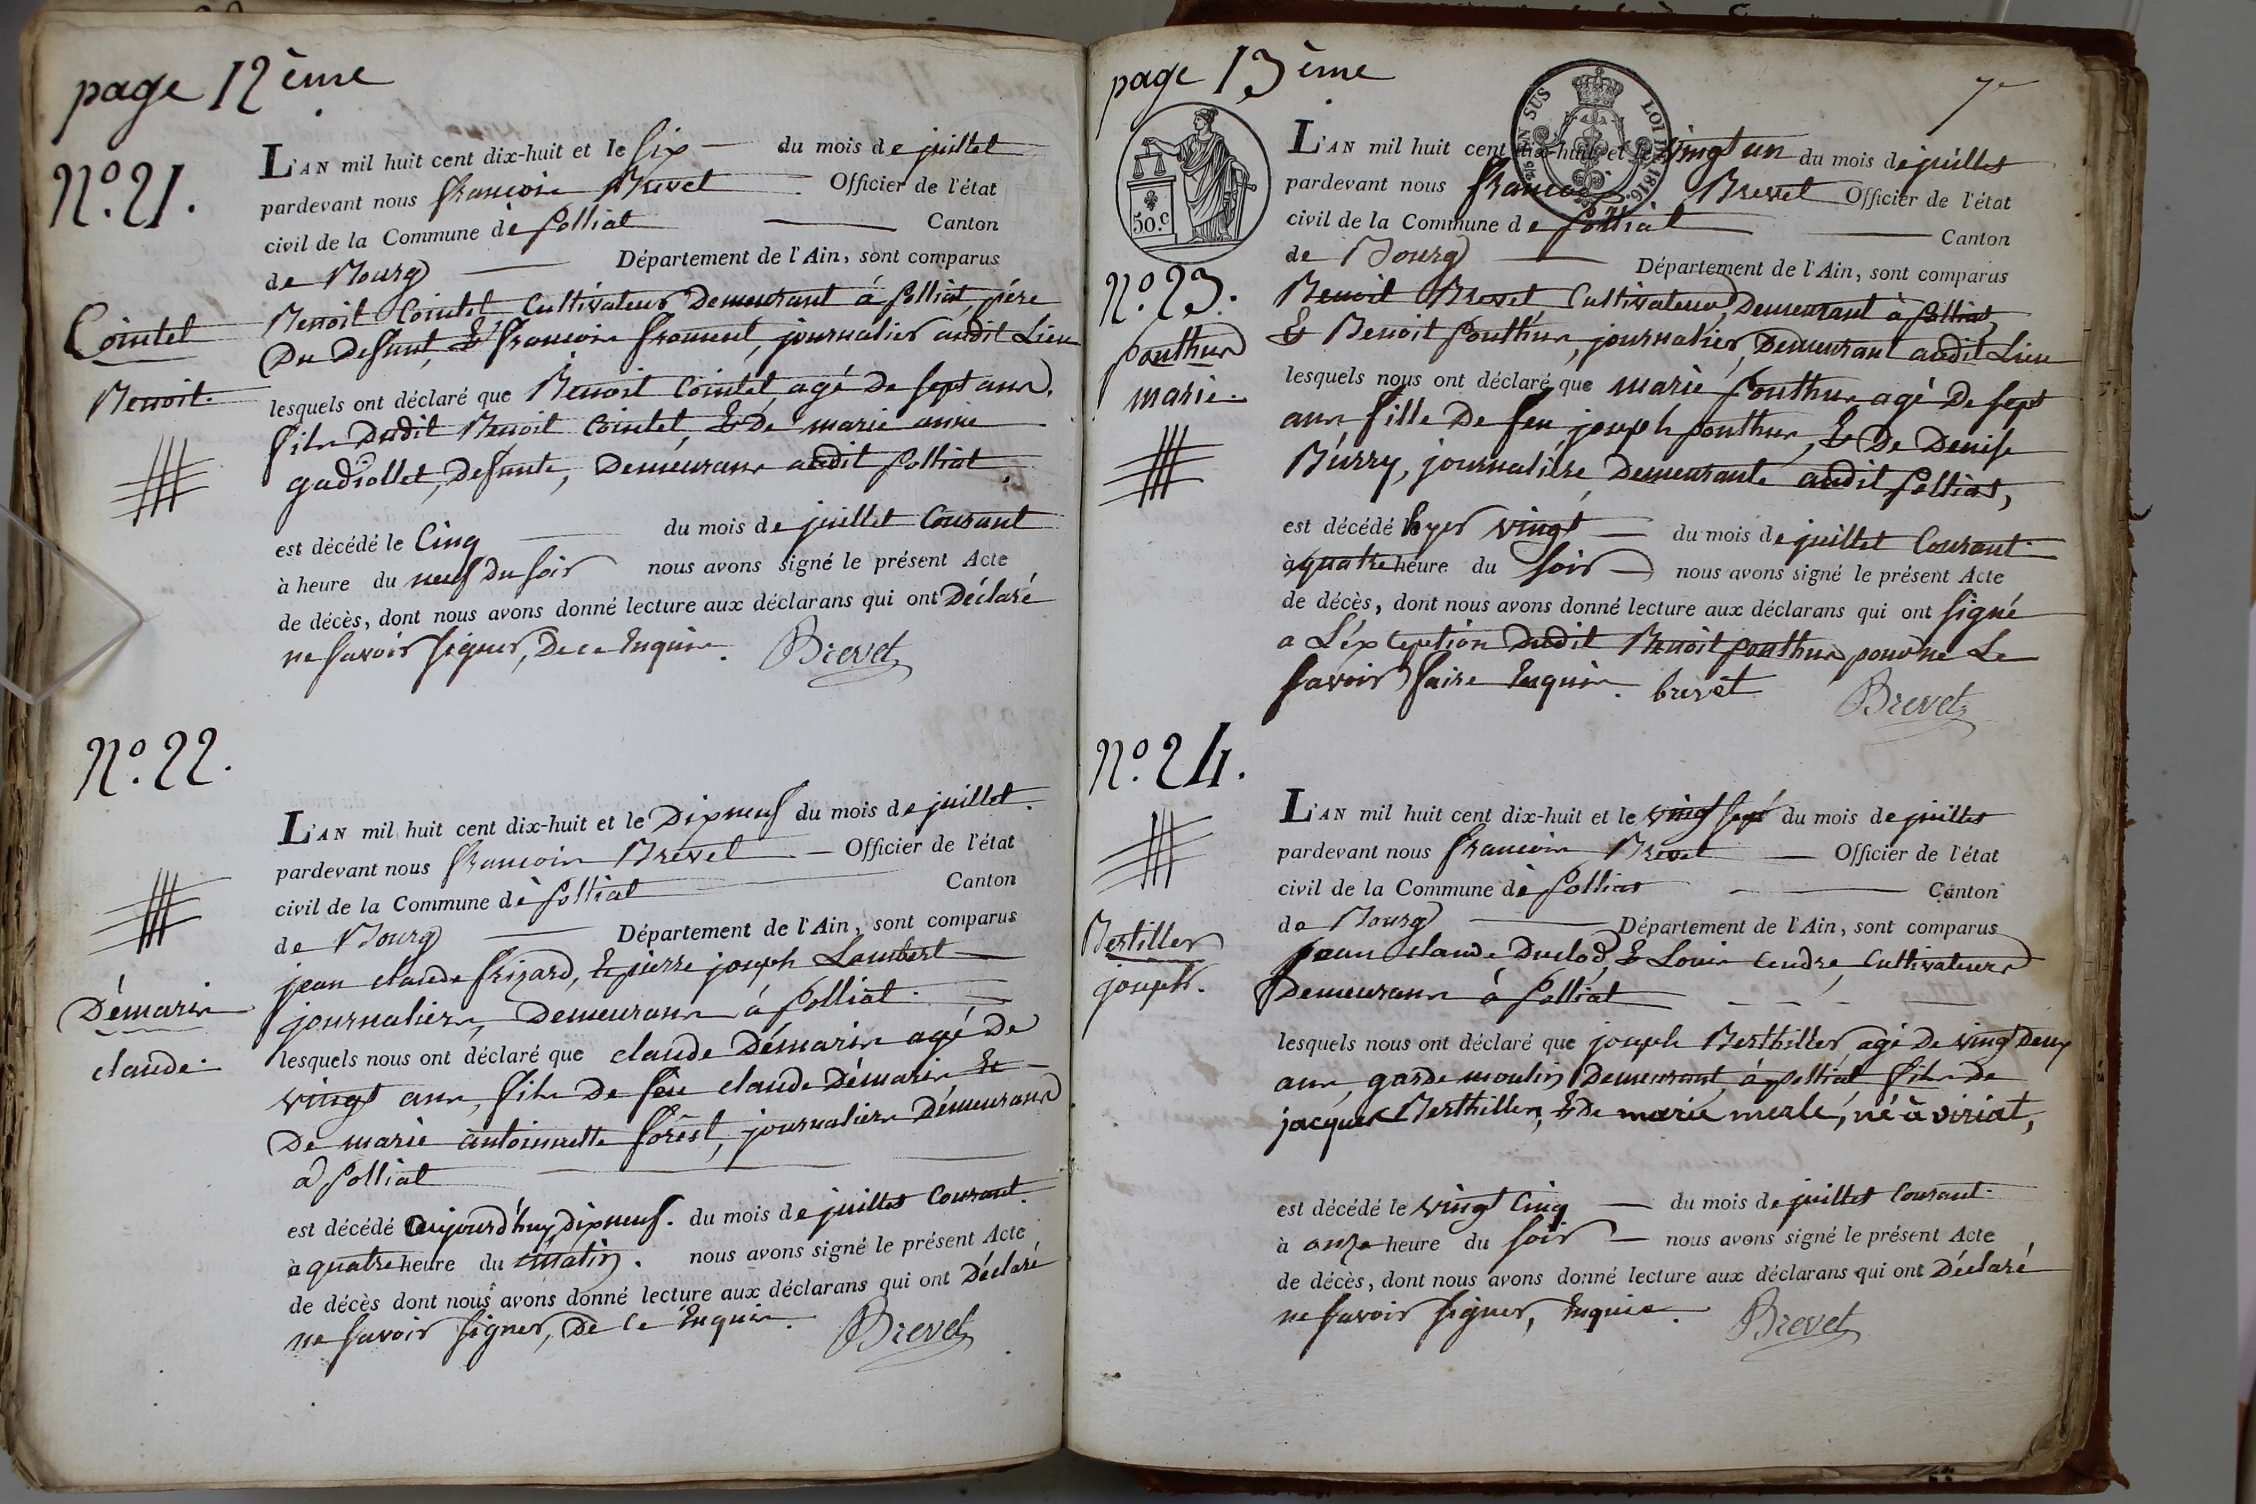 page 12ème
N.º 21.
L'AN mil huit cent dix-huit et le six du mois de juillet
pardevant nous françois Brevet Officier de l'état
civil de la Commune de polliat Canton
de Bourg Département de l'Ain, sont comparus
Cointet
Benoit.
Benoit Cointet Cultivateur Demeurant á polliat, pére
Du Defunt, & françois froment, journalier audit Lieu
lesquels ont déclaré que Benoit Cointet, agé De sept ans.
fils Dudit Benoit Cointet, & De marie anne
gadiollet, Defunte, Demeurans audit polliat
est décédé le Cinq du mois de juillet Courant
à heure du neuf Du soir nous avons signé le présent Acte
de décès, dont nous avons donné lecture aux déclarans qui ont Déclaré
ne savoir signer, De ce Enquis. Brevet
N.º 22.
L'AN mil huit cent dix-huit et le Dixneuf du mois de juillet.
pardevant nous françois Brevet Officier de l'état
civil de la Commune de polliat Canton
de Bourg Département de l'Ain, sont comparus
Démaris
claude.
jean claude frizard, & pierre joseph Lambert
journaliers, Demeurans á polliat.
lesquels nous ont déclaré que claude Démaris agé De
vingt ans, fils De feu claude Démaris &
De marie antoinette forêst, journaliers Démeurans
a polliat
est décédé aujourd'huy Dixneuf. du mois de juillet Courant.
à quatre heure du matin. nous avons signé le présent Acte
de décès dont nous avons donné lecture aux déclarans qui ont Déclaré
ne savoir signer, De Ce Enquis. Brevet
page 13ème
7e
50.c
SUS
LOI DE 1816.
L'AN mil huit cent dix-huit et le vingt un du mois de juillet
pardevant nous françois Brevet Officier de l'état
civil de la Commune de polliat Canton
de Bourg Département de l'Ain, sont comparus
N.º 23.
ponthus
marie.
Benoit Brevet, Cultivateur, Demeurant à polliat,
& Benoit ponthus, journalier, Demeurant audit Lieu
lesquels nous ont déclaré que marie ponthus agé De sept
ans fille De feu joseph ponthus, & De Denise
Burry, journalière Demeurante audit polliat,
est décédé hyer vingt du mois de juillet Courant.
à quatre heure du soir nous avons signé le présent Acte
de décès, dont nous avons donné lecture aux déclarans qui ont signé
a L'éxception Dudit Benoit ponthus pour ne Le
savoir faire Enquis. brevet Brevet
N.º 24.
L'AN mil huit cent dix-huit et le vingt sept du mois de juillet
pardevant nous françois Brevet Officier de l'état
civil de la Commune de polliat Canton
de Bourg Département de l'Ain, sont comparus
Bertiller
joseph.
jean claude Duclod, & Louis Cendre, Cultivateurs
Demeurans á polliat
lesquels nous ont déclaré que joseph Berthiller agé De vingt Deux
ans, garde moulin Demeurant, á polliat fils de
jacques Berthiller, & De marie merle, né à viriat,
est décédé le vingt Cinq du mois de juillet Courant.
à onze heure du soir nous avons signé le présent Acte
de décès, dont nous avons donné lecture aux déclarans qui ont Déclaré
ne savoir signer, Enquis. Brevet